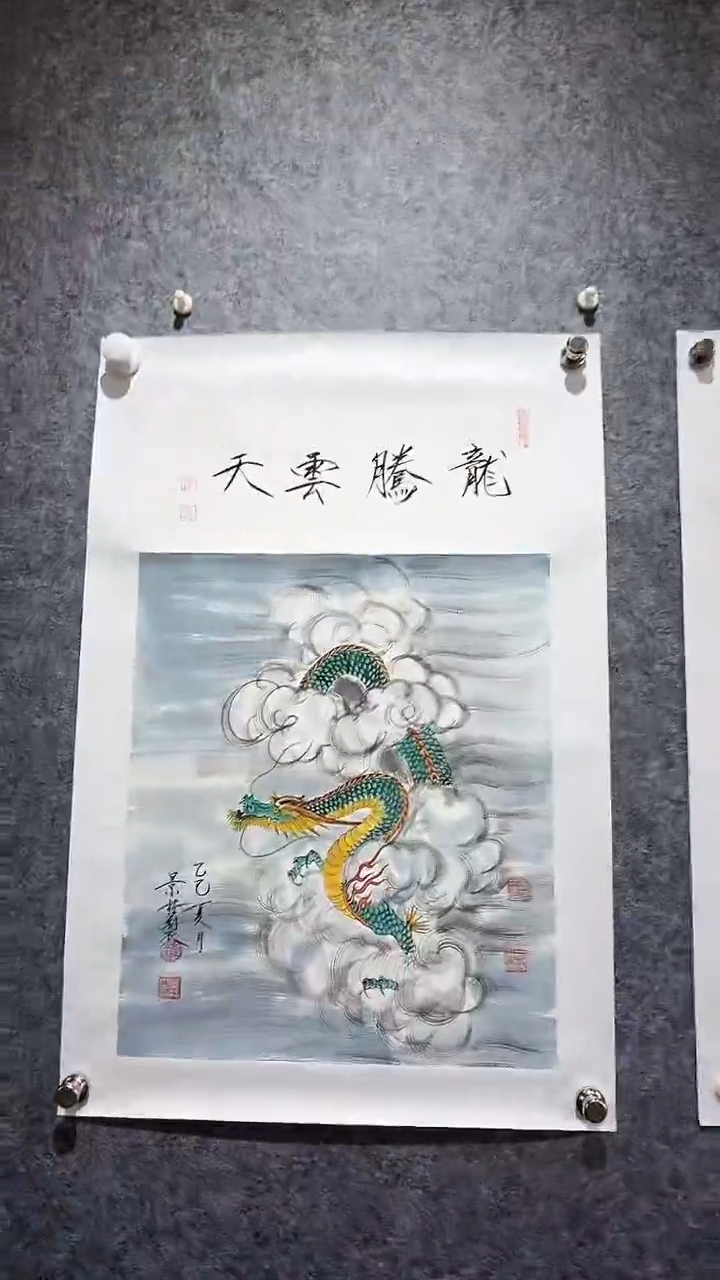 龍騰雲天
乙巳夏月
景